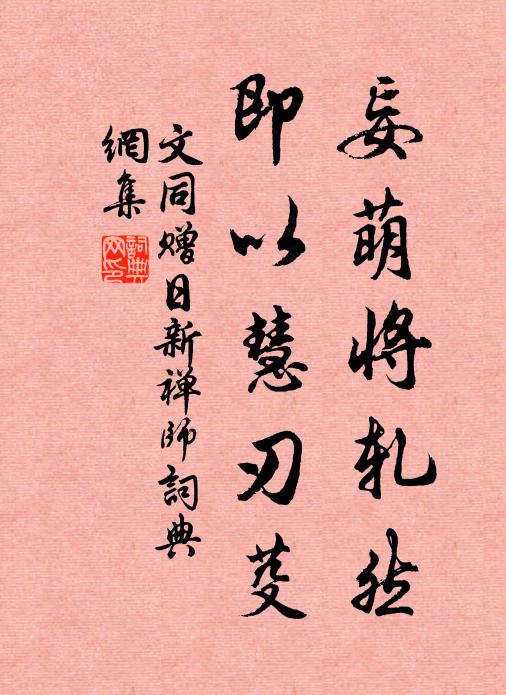 妄萌将轧然
即以慧刃芟
文同赠日新禅师詞典
網集
詞典网印